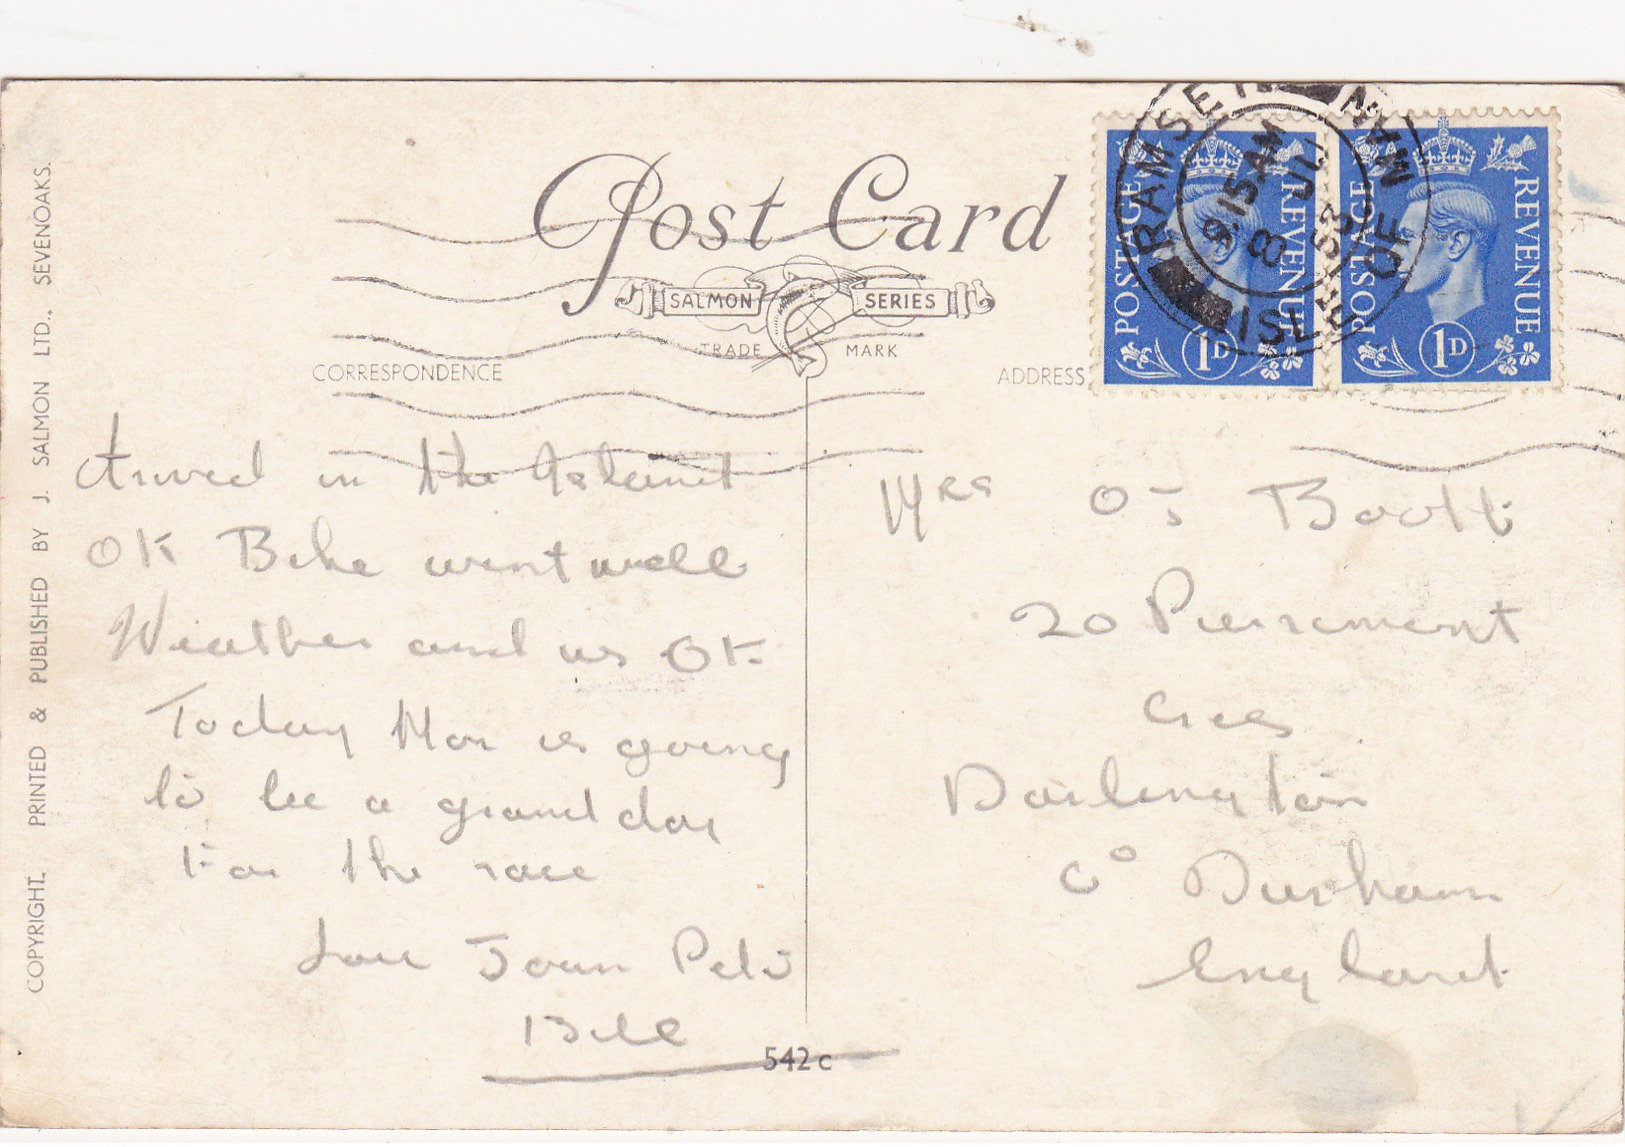 Post Card
SALMON SERIES
TRADE MARK
CORRESPONDENCE
ADDRESS
RAMSEY ISLE OF MAN
9.15 AM
8 JU
53
POSTAGE REVENUE
1D
POSTAGE REVENUE
1D
Arrived in the Island
OK Bike went well
Weather and us OK
Today Mon is going
to be a grand day
For the race
Love Joan Pete
Bill
Mrs O J Boott
20 Pierremont
Cres
Darlington
Co Durham
England
542c
COPYRIGHT. PRINTED & PUBLISHED BY J. SALMON LTD., SEVENOAKS.